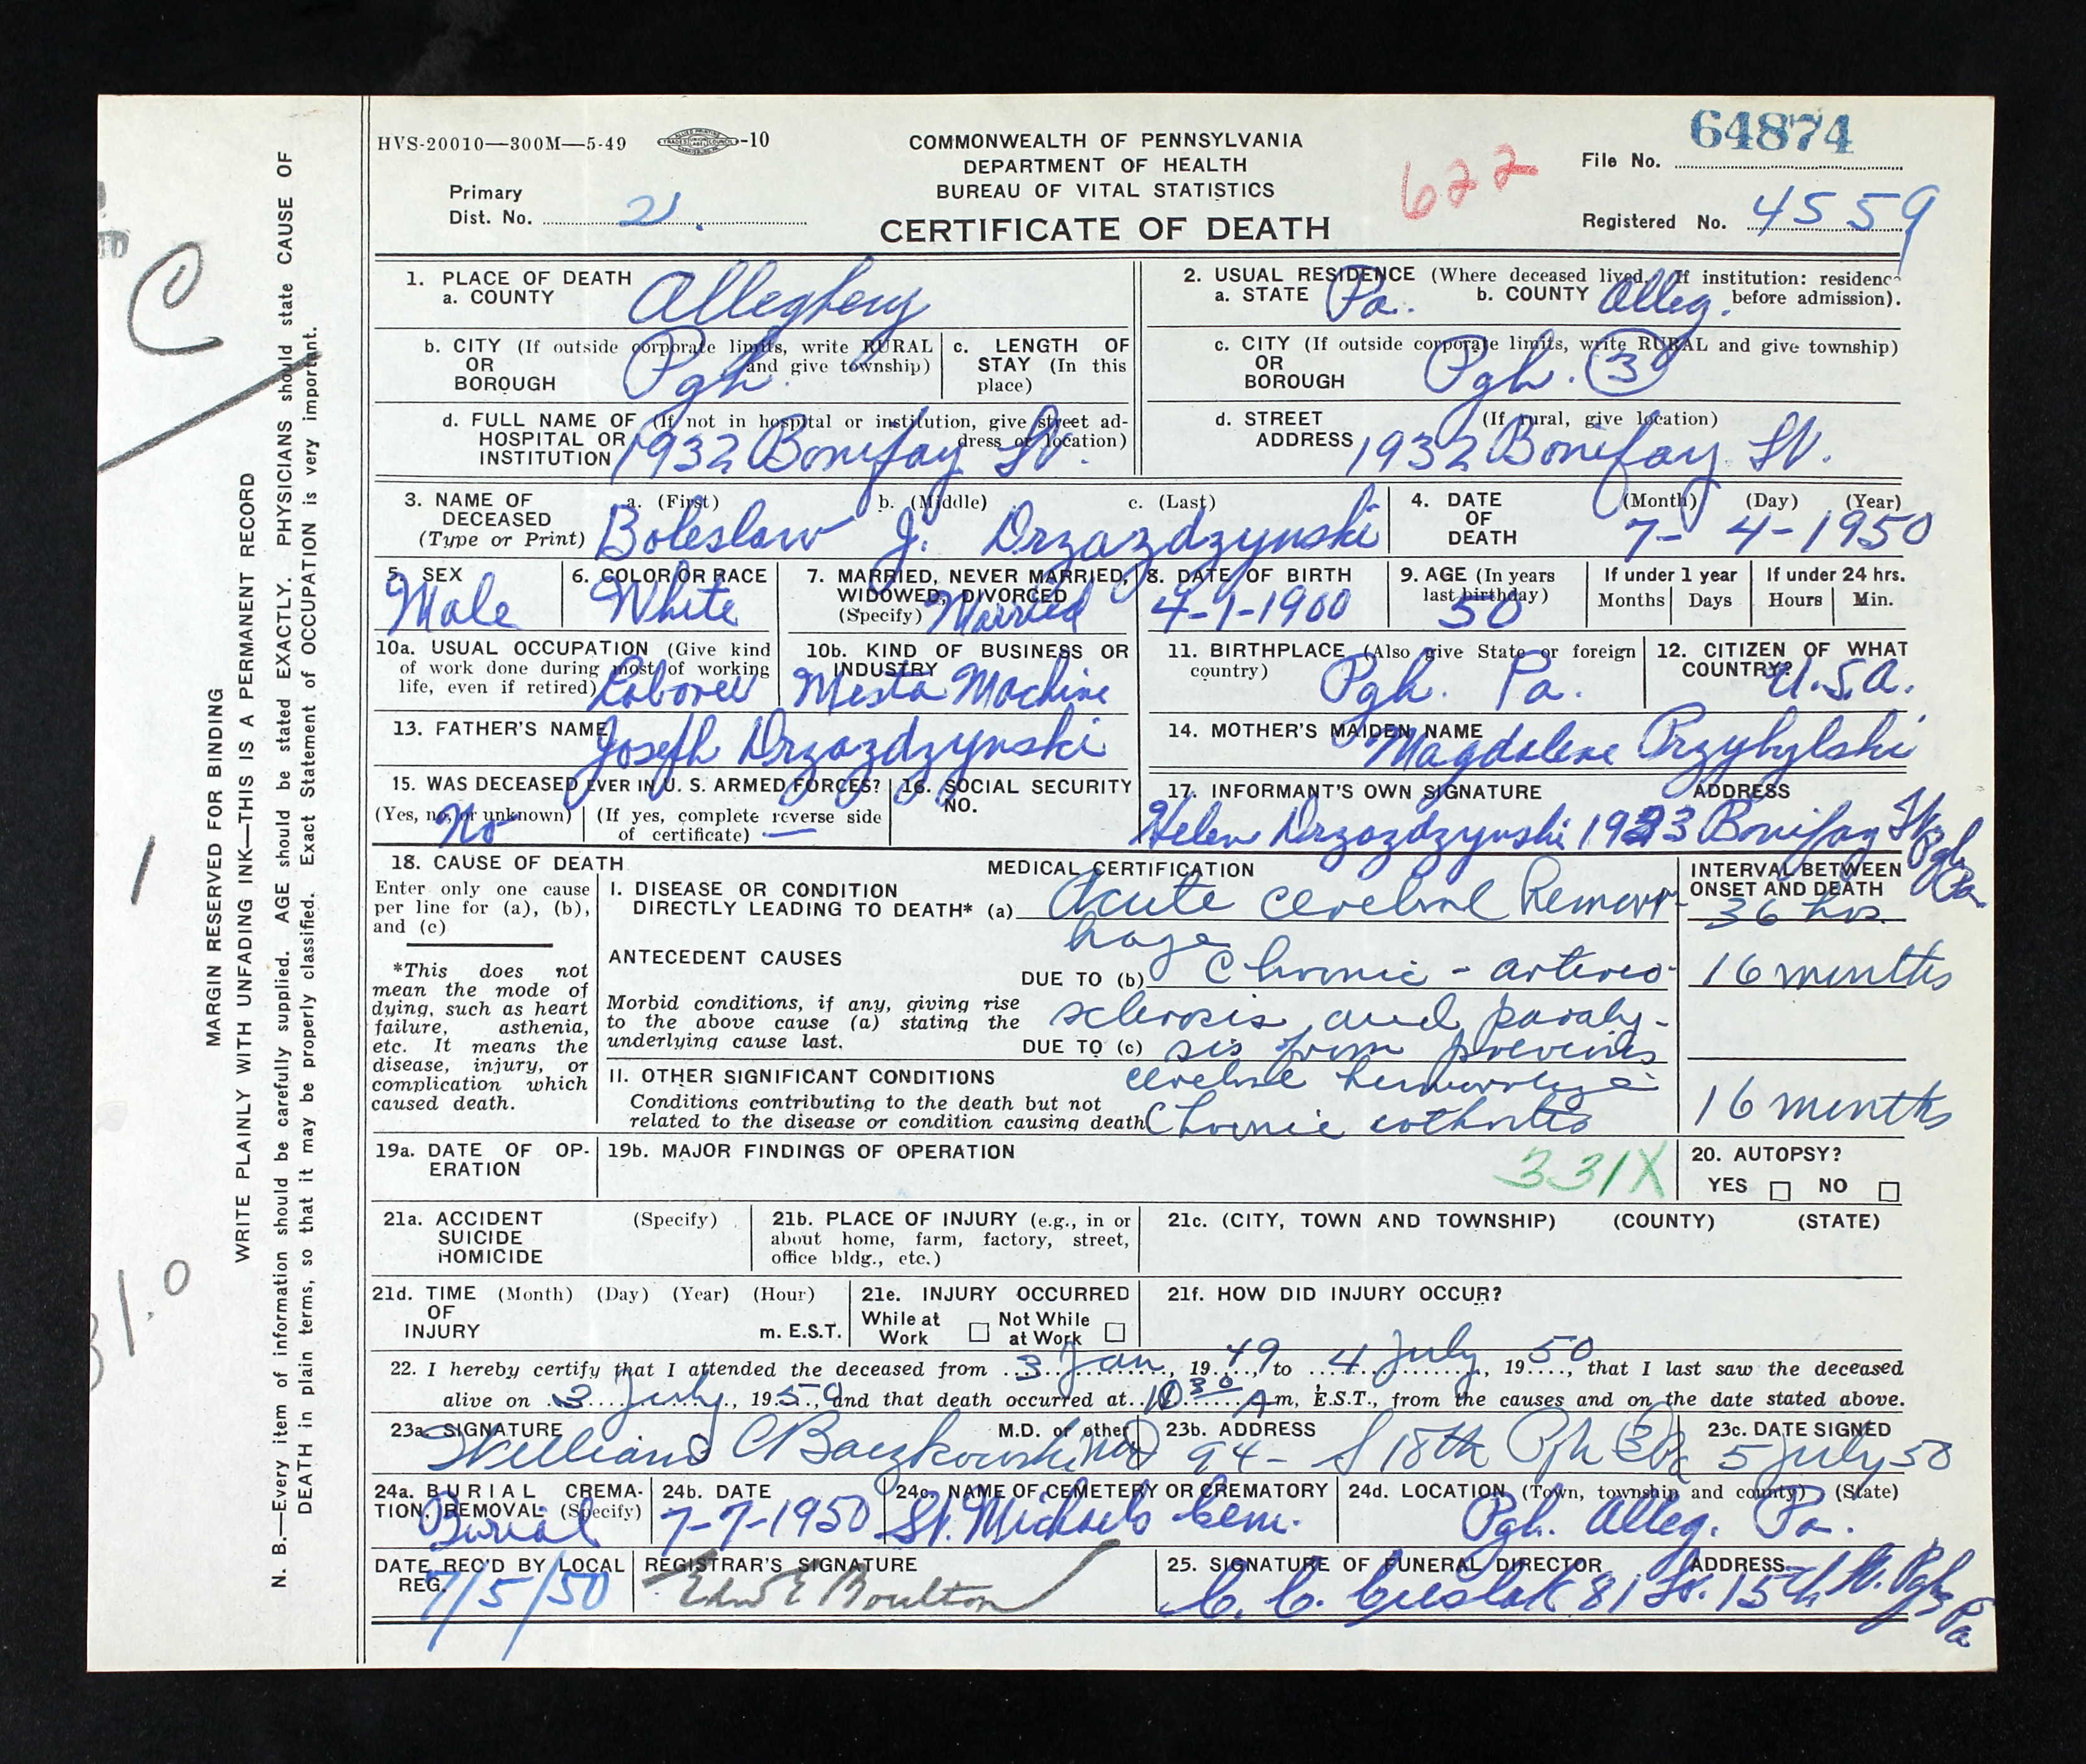 HVS-20010—300M—5-49 -10
COMMONWEALTH OF PENNSYLVANIA
DEPARTMENT OF HEALTH
BUREAU OF VITAL STATISTICS
CERTIFICATE OF DEATH
622
64874
File No.
Primary
Dist. No. 21.
Registered No. 4559
MARGIN RESERVED FOR BINDING
WRITE PLAINLY WITH UNFADING INK—THIS IS A PERMANENT RECORD
N. B.—Every item of information should be carefully supplied. AGE should be stated EXACTLY. PHYSICIANS should state CAUSE OF
DEATH in plain terms, so that it may be properly classified. Exact Statement of OCCUPATION is very important.
C
1
31.0
1. PLACE OF DEATH
a. COUNTY Allegheny
2. USUAL RESIDENCE (Where deceased lived. If institution: residence
a. STATE Pa. b. COUNTY Alleg. before admission).
b. CITY (If outside corporate limits, write RURAL
OR and give township)
BOROUGH Pgh.
c. LENGTH OF
STAY (In this
place)
c. CITY (If outside corporate limits, write RURAL and give township)
OR
BOROUGH Pgh. 3
d. FULL NAME OF (If not in hospital or institution, give street ad-
HOSPITAL OR dress or location)
INSTITUTION 1932 Bonifay St.
d. STREET (If rural, give location)
ADDRESS 1932 Bonifay St.
3. NAME OF a. (First) b. (Middle) c. (Last)
DECEASED
(Type or Print) Boleslaw J. Drzazdzynski
4. DATE (Month) (Day) (Year)
OF
DEATH 7- 4-1950
5. SEX
Male
6. COLOR OR RACE
White
7. MARRIED, NEVER MARRIED,
WIDOWED, DIVORCED
(Specify) Married
8. DATE OF BIRTH
4-1-1900
9. AGE (In years
last birthday)
50
If under 1 year
Months Days
If under 24 hrs.
Hours Min.
10a. USUAL OCCUPATION (Give kind
of work done during most of working
life, even if retired) Laborer
10b. KIND OF BUSINESS OR
INDUSTRY
Mesta Machine
11. BIRTHPLACE (Also give State or foreign
country) Pgh. Pa.
12. CITIZEN OF WHAT
COUNTRY? U.S.A.
13. FATHER'S NAME Joseph Drzazdzynski
14. MOTHER'S MAIDEN NAME
Magdalene Przybylski
15. WAS DECEASED EVER IN U. S. ARMED FORCES?
(Yes, no, or unknown) No
(If yes, complete reverse side
of certificate) —
16. SOCIAL SECURITY
NO.
17. INFORMANT'S OWN SIGNATURE ADDRESS
Helen Drzazdzynski 1933 Bonifay St. Pgh Pa.
18. CAUSE OF DEATH
Enter only one cause
per line for (a), (b),
and (c)
*This does not
mean the mode of
dying, such as heart
failure, asthenia,
etc. It means the
disease, injury, or
complication which
caused death.
MEDICAL CERTIFICATION
I. DISEASE OR CONDITION
DIRECTLY LEADING TO DEATH* (a) Acute cerebral hemorr-
hage
ANTECEDENT CAUSES
DUE TO (b) Chronic - arterio-
Morbid conditions, if any, giving rise
to the above cause (a) stating the
underlying cause last.
sclerosis and paraly-
DUE TO (c) sis from previous
cerebral hemorrhage
II. OTHER SIGNIFICANT CONDITIONS
Conditions contributing to the death but not
related to the disease or condition causing death Chronic
INTERVAL BETWEEN
ONSET AND DEATH
36 hrs
16 months
16 months
19a. DATE OF OP-
ERATION
19b. MAJOR FINDINGS OF OPERATION
331X
20. AUTOPSY?
YES NO
21a. ACCIDENT (Specify)
SUICIDE
HOMICIDE
21b. PLACE OF INJURY (e.g., in or
about home, farm, factory, street,
office bldg., etc.)
21c. (CITY, TOWN AND TOWNSHIP) (COUNTY) (STATE)
21d. TIME (Month) (Day) (Year) (Hour)
OF
INJURY m. E.S.T.
21e. INJURY OCCURRED
While at Not While
Work at Work
21f. HOW DID INJURY OCCUR?
22. I hereby certify that I attended the deceased from 3 Jan, 1949, to 4 July, 1950, that I last saw the deceased
alive on 3 July, 1950, and that death occurred at 10 30 A m, E.S.T., from the causes and on the date stated above.
23a. SIGNATURE M.D. or other
William C Baczkowski MD
23b. ADDRESS
94 - S 18th Pgh 3 Pa
23c. DATE SIGNED
5 July 50
24a. BURIAL CREMA-
TION, REMOVAL (Specify)
Burial
24b. DATE
7-7-1950
24c. NAME OF CEMETERY OR CREMATORY
St. Michaels Cem.
24d. LOCATION (Town, township and county) (State)
Pgh. Alleg. Pa.
DATE REC'D BY LOCAL
REG. 7/5/50
REGISTRAR'S SIGNATURE
Edw E Boulton
25. SIGNATURE OF FUNERAL DIRECTOR ADDRESS
C. C. Cieslak 81 So. 15th St. Pgh Pa